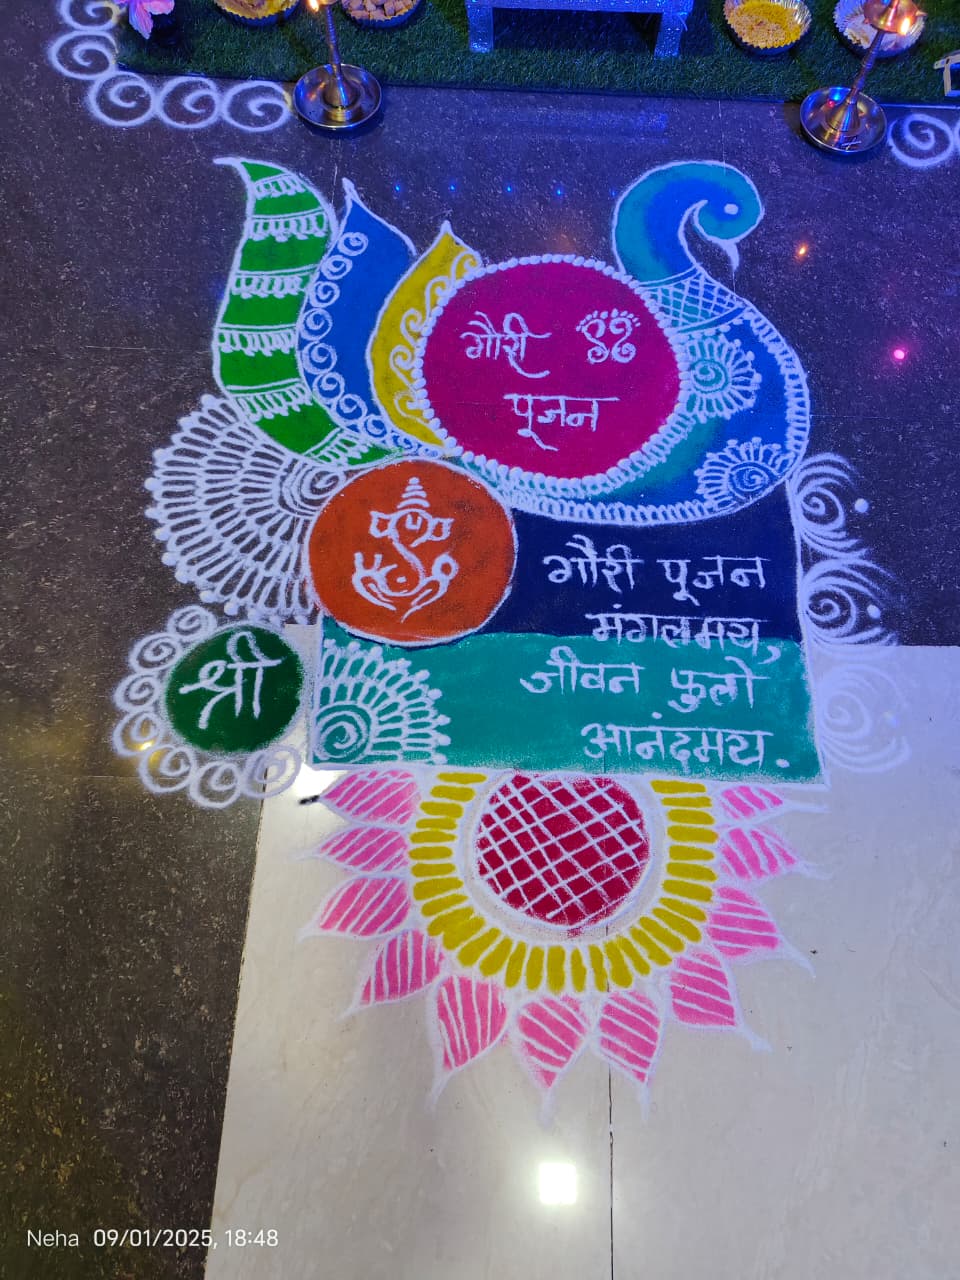 गौरी
पूजन
गौरी पूजन
मंगलमय,
जीवन फुलो
आनंदमय.
श्री
Neha 09/01/2025, 18:48